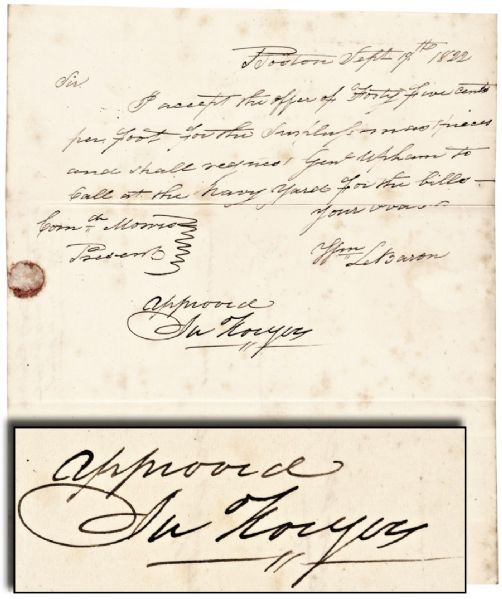 Boston Sept 19th 1822
Sir
I accept the offer of Forty five cents
per foot for the pieces
and shall request Genl Upham to
Call at the Navy Yard for the bills –
Your
Comdr Morris
Present
Wm LeBaron
approved
Jn Rodgers
approved
Jn Rodgers